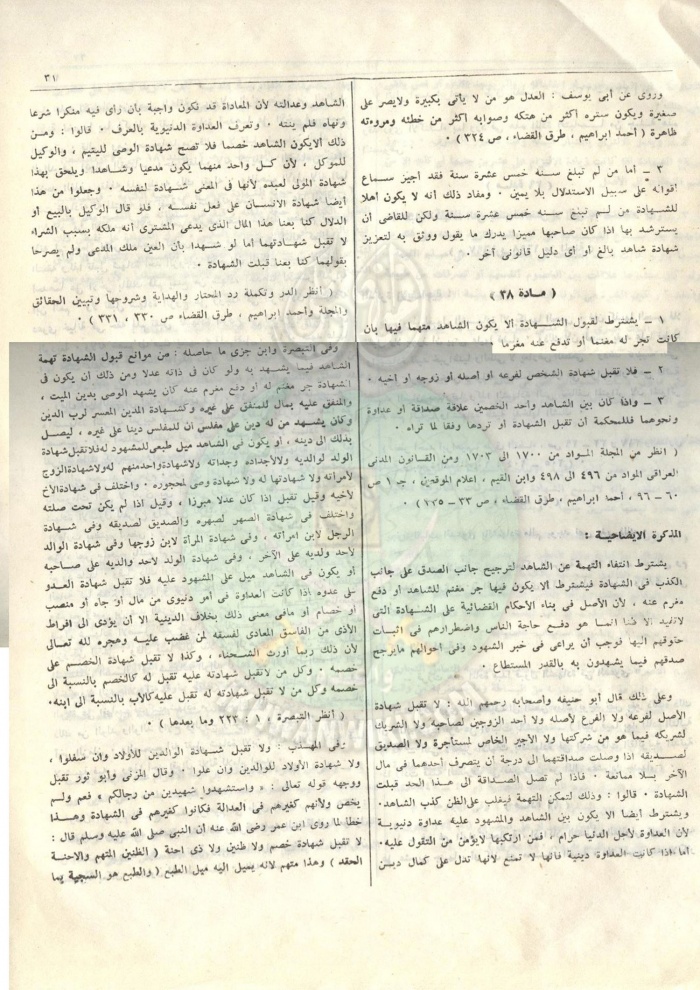 ٣١
وروى عن أبى يوسف : العدل هو من لا يأتى بكبيرة ولايصر على
صغيرة ويكون ستره اكثر من هتكه وصوابه اكثر من خطئه ومروءته
ظاهرة ( أحمد ابراهيم ، طرق القضاء ، ص ٣٢٤ ) ٠
٣ ــ أما من لم تبلغ سنه خمس عشرة سنة فقد اجيز سماع
اقواله على سبيل الاستدلال بلا يمين ٠ ومفاد ذلك أنه لا يكون اهلا
للشهادة من لم تبلغ سنه خمس عشرة سنة ولكن للقاضى أن
يسترشد بها اذا كان صاحبها مميزا يدرك ما يقول ووثق به لتعزيز
شهادة شاهد بالغ أو أى دليل قانونى آخر ٠
( مادة ٣٨ )
١ ــ يشترط لقبول الشهادة ألا يكون الشاهد متهما فيها بأن
كانت تجر له مغنما أو تدفع عنه مغرما
٢ ــ فلا تقبل شهادة الشخص لفرعه أو أصله أو زوجه أو اخيه ٠
٣ ــ واذا كان بين الشاهد وأحد الخصمين علاقة صداقة أو عداوة
ونحوهما فللمحكمة ان تقبل الشهادة أو تردها وفقا لما تراه ٠
( انظر من المجلة المواد من ١٧٠٠ الى ١٧٠٣ ومن القانون المدنى
العراقى المواد من ٤٩٦ الى ٤٩٨ وابن القيم ، اعلام الموقعين ، جـ ١ ص
٦٠ ــ ٩٦ ، أحمد ابراهيم ، طرق القضاء ، ص ٣٣ ــ ٣٣٥ ) ٠
المذكرة الايضاحية :
يشترط انتفاء التهمة عن الشاهد لترجيح جانب الصدق على جانب
الكذب فى الشهادة فيشترط ألا يكون فيها جر مغنم للشاهد أو دفع
مغرم عنه ، لأن الأصل فى بناء الأحكام القضائية على الشهادة التى
لاتفيد الا ظنا انما هو دفع حاجة الناس واضطرارهم فى اثبات
حقوقهم اليها فوجب أن يراعى فى خبر الشهود وفى احوالهم مايرجح
صدقهم فيما يشهدون به بالقدر المستطاع ٠
وعلى ذلك قال أبو حنيفه وأصحابه رحمهم الله : لا تقبل شهادة
الأصل لفرعه ولا الفرع لأصله ولا أحد الزوجين لصاحبه ولا الشريك
لشريكه فيما هو من شركتها ولا الأجير الخاص لمستأجرة ولا الصديق
لصديقه اذا وصلت صداقتهما الى درجة ان يتصرف أحدهما فى مال
الآخر بلا ممانعة ٠ فاذا لم تصل الصداقة الى هذا الحد قبلت
الشهادة ٠ قالوا : وذلك لتمكن التهمة فيغلب على الظن كذب الشاهد٠
ويشترط أيضا الا يكون بين الشاهد والمشهود عليه عداوة دنيوية
لأن العداوة لأجل الدنيا حرام ، فمن ارتكبها لايؤمن من التقول عليه٠
أما اذا كانت العداوة دينية فانها لا تمنع لانها تدل على كمال ديـن
الشاهد وعدالته لأن المعاداة قد تكون واجبة بأن رأى فيه منكرا شرعا
ونهاه فلم ينته ٠ وتعرف العداوة الدنيوية بالعرف ٠ قالوا : ومـن
ذلك الايكون الشاهد خصما فلا تصح شهادة الوصى لليتيم ، والوكيل
للموكل ، لأن كل واحد منهما يكون مدعيا وشاهدا ويلحق بهذا
شهادة المولى لعبده لأنها فى المعنى شهادة لنفسه ٠ وجعلوا من هذا
أيضا شهادة الانسان على فعل نفسه ، فلو قال الوكيل بالبيع أو
الدلال كنا بعنا هذا المال الذى يدعى المشترى أنه ملكه بسبب الشراء
لا تقبل شهادتهما أما لو شهدا بأن العين ملك المدعى ولم يصرحا
بقولهما كنا بعنا قبلت الشهادة ٠
( أنظر الدر وتكملة رد المحتار والهداية وشروحها وتبيين الحقائق
والمجلة وأحمد ابراهيم ، طرق القضاء ص ٣٣٠ ، ٣٣١ ) ٠
وفى التبصرة وابن جزى ما حاصله : من موانع قبول الشهادة تهمة
الشاهد فيما يشهد به ولو كان فى ذاته عدلا ومن ذلك أن يكون فى
الشهادة جر مغنم له او دفع مغرم عنه كأن يشهد الوصى بدين الميت ،
والمنفق عليه بمال للمنفق على غيره وكشهادة المدين المعسر لرب الدين
وكأن يشهد من له دين على مفلس ان للمفلس دينا على غيره ، ليصل
بذلك الى دينه ، أو يكون فى الشاهد ميل طبعى للمشهود له فلاتقبل شهادة
الولد لوالديه ولالأجداده وجداته ولاشهادة واحد منهم له ولا شهادة الزوج
لأمراته ولا شهادتها له ولا شهادة وصى لمحجوره ٠ واختلف فى شهادة الأخ
لأخيه وقيل تقبل اذا كان عدلا مبرزا ، وقيل اذا لم يكن تحت صلته
واختلف فى شهادة الصهر لصهره والصديق لصديقه وفى شهادة
الرجل لابن امرأته ، وفى شهادة المرأة لابن زوجها وفى شهادة الوالد
لأحد ولديه على الآخر ٠ وفى شهادة الولد لاحد والديه على صاحبه
أو يكون فى الشاهد ميل على المشهود عليه فلا تقبل شهادة العدو
على عدوه اذا كانت العداوة فى أمر دنيوى من مال أو جاه أو منصب
أو خصام أو مافى معنى ذلك بخلاف الدينية الا أن يؤدى الى افراط
الأذى من الفاسق المعادى لفسقه لمن غضب عليه وهجره لله تعـالى
لأن ذلك ربما أورث الشحناء ، وكذا لا تقبل شهادة الخصم على
خصمه ٠ وكل من لاتقبل شهادته عليه تقبل له كالخصم بالنسبة الى
خصمه وكل من لا تقبل شهادته له تقبل عليه كالأب بالنسبة الى ابنه٠
( أنظر التبصرة ، ١ : ٢٢٣ وما بعدها ) ٠
وفى المهذب : ولا تقبل شهادة الوالدين للأولاد وان سفلوا ،
ولا شهادة الأولاد للوالدين وان علوا ٠ وقال المزنى وأبو ثور تقبل
ووجهه قوله تعالى : « واستشهدوا شهيدين من رجالكم » فعم ولـم
يخص ولأنهم كغيرهم فى العدالة فكانوا كغيرهم فى الشهادة وهـذا
خطأ لما روى ابن عمر رضى الله عنه أن النبى صلى الله عليه وسلم قال :
لا تقبل شهادة خصم ولا ظنين ولا ذى احنة ( الظنين المتهم والاحنة
الحقد ) وهذا متهم لانه يميل اليه ميل الطبع ( والطبع هو السجية بما